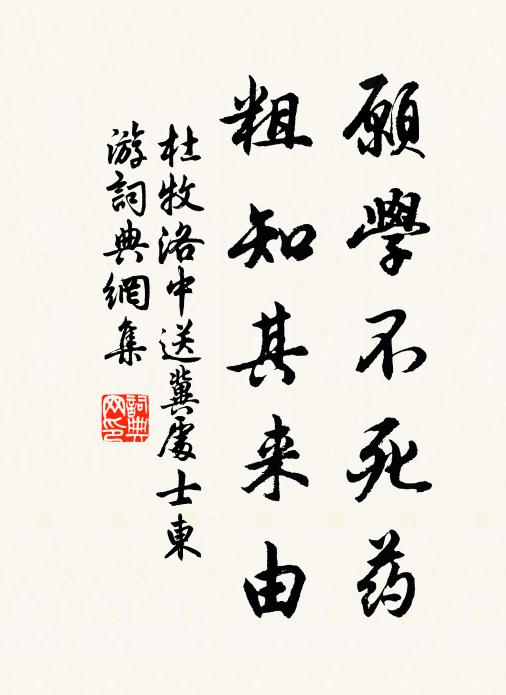 願學不死药
粗知其来由
杜牧洛中送冀處士東
游詞典網集
詞典
网印